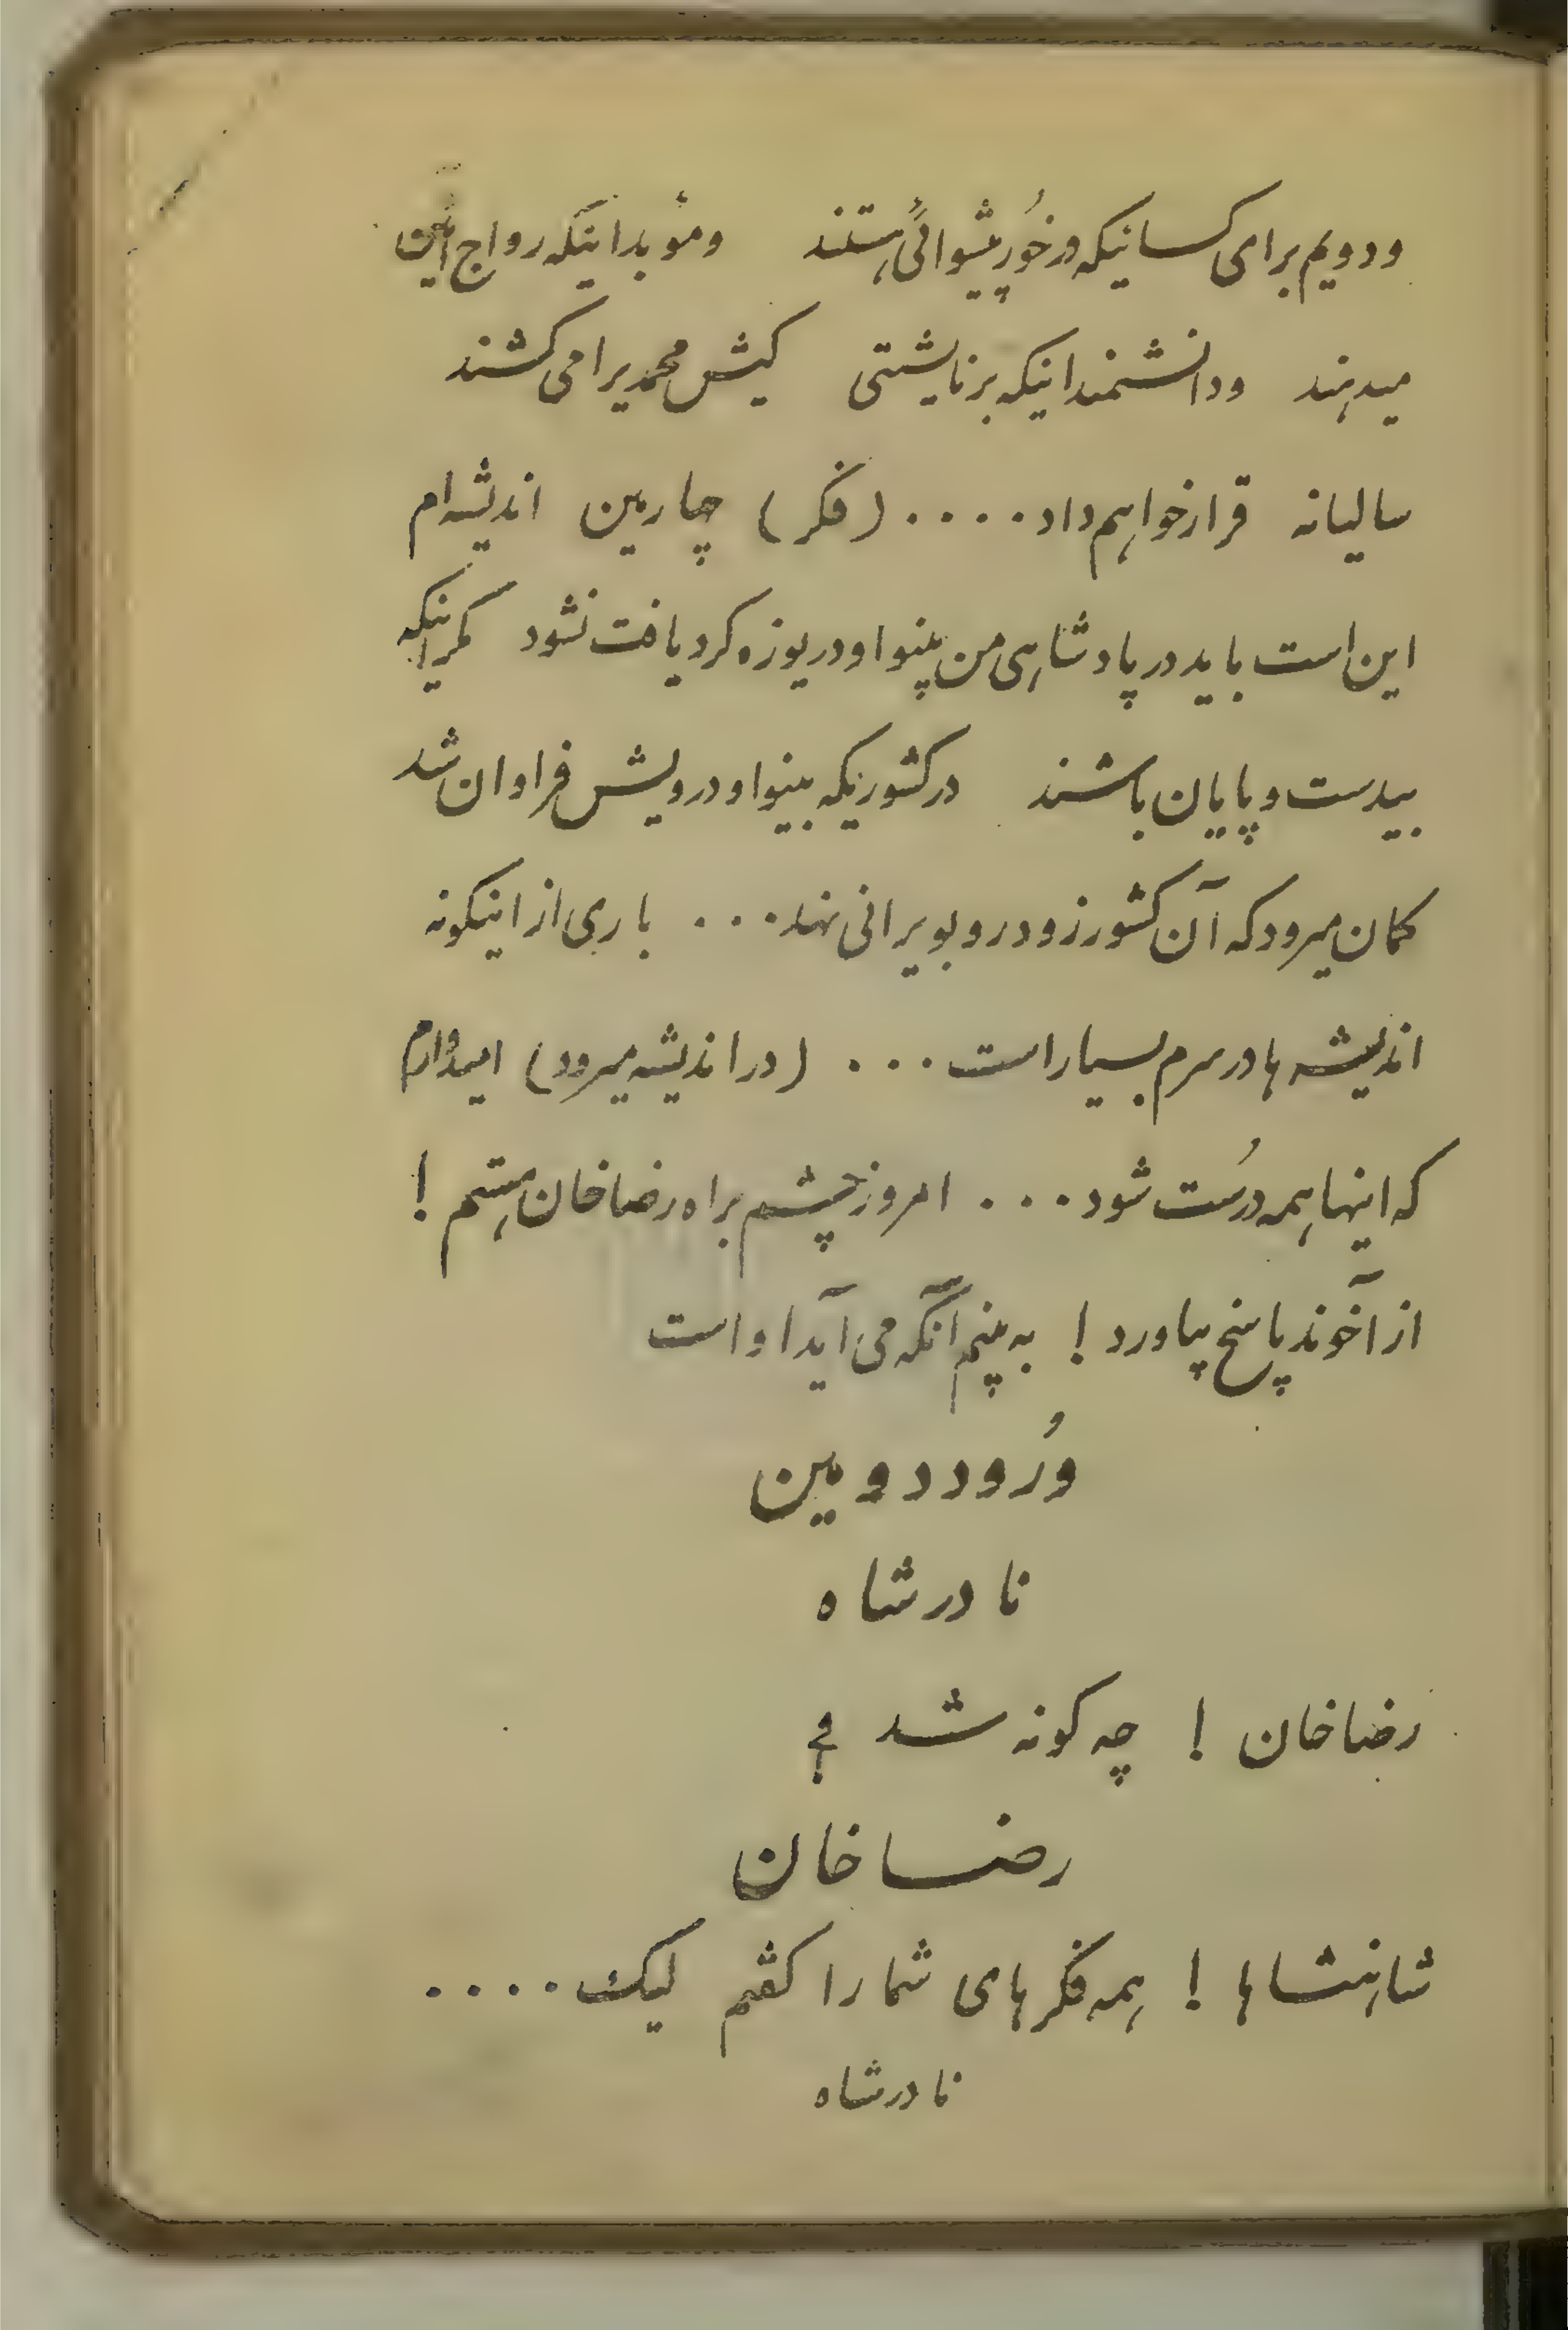 ودویم برای کسانیکه درخُور پیشوائی هستند ومؤبدانیکه رواج این
میدهند ودانشمندانیکه برنایشتی کیش محمدیرا می کشند
سالیانه قرار خواهم داد .... (فکر) چارمین اندیشه ام
این است باید در پادشاهی من بینوا ودریوزه کرد یافت نشود مکر اینکه
بیدست وپایان باشند درکشوریکه بینوا ودرویش فراوان شد
کمان میرود که آن کشور زود رو بویرانی نهد ... باری از اینکونه
اندیشه ها در سرم بسیار است ... (در اندیشه میرود) امیدوارم
که اینها همه درُست شود ... امروز چشم براه رضاخان هستم !
از آخوند پاسخ بیاورد ! به بینم آنکه می آید او است
وُرود دومین
نادر شاه
رضاخان ! چه کونه شد ؟
رضاخان
شاهنشاها ! همه فکرهای شما را کفتم لیک ....
نادرشاه